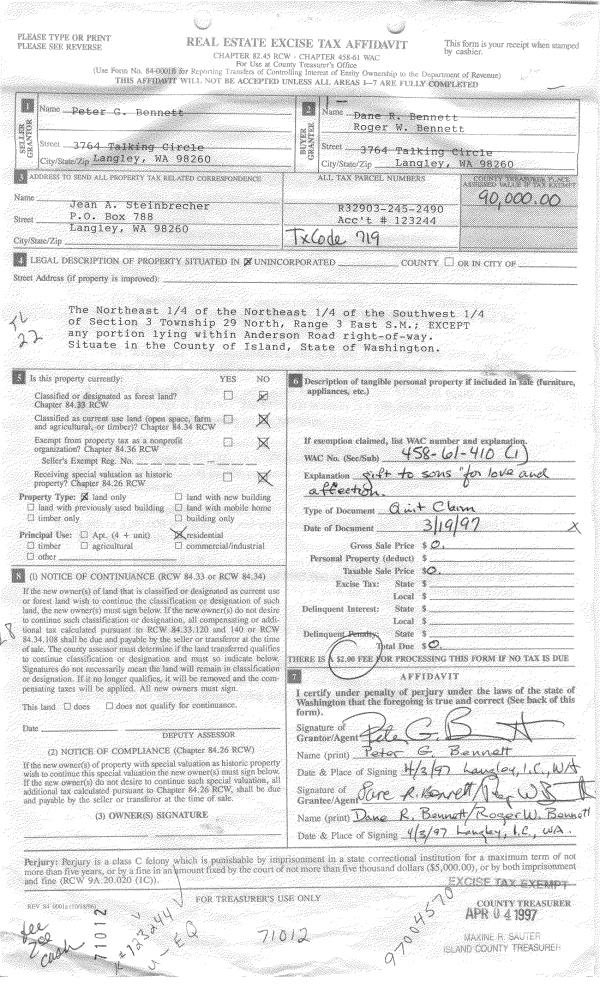 PLEASE TYPE OR PRINT
PLEASE SEE REVERSE
REAL ESTATE EXCISE TAX AFFIDAVIT
This form is your receipt when stamped by cashier.
CHAPTER 82.45 RCW - CHAPTER 458-61 WAC
For Use at County Treasurer's Office
(Use Form No. 84-0001B for Reporting Transfers of Controlling Interest of Entity Ownership to the Department of Revenue)
THIS AFFIDAVIT WILL NOT BE ACCEPTED UNLESS ALL AREAS 1-7 ARE FULLY COMPLETED
1 SELLER GRANTOR
Name Peter G. Bennett
Street 3764 Talking Circle
City/State/Zip Langley, WA 98260
2 BUYER GRANTEE
Name Dane R. Bennett
Roger W. Bennett
Street 3764 Talking Circle
City/State/Zip Langley, WA 98260
3 ADDRESS TO SEND ALL PROPERTY TAX RELATED CORRESPONDENCE
Name Jean A. Steinbrecher
Street P.O. Box 788
Langley, WA 98260
City/State/Zip
ALL TAX PARCEL NUMBERS
R32903-245-2490
Acc't # 123244
TxCode 719
COUNTY TREASURER PLACE
ASSESSED VALUE IF TAX EXEMPT
90,000.00
4 LEGAL DESCRIPTION OF PROPERTY SITUATED IN ☒ UNINCORPORATED COUNTY ☐ OR IN CITY OF
Street Address (if property is improved):
TL
22
The Northeast 1/4 of the Northeast 1/4 of the Southwest 1/4
of Section 3 Township 29 North, Range 3 East S.M.; EXCEPT
any portion lying within Anderson Road right-of-way.
Situate in the County of Island, State of Washington.
5 Is this property currently: YES NO
Classified or designated as forest land? ☐ ☒
Chapter 84.33 RCW
Classified as current use land (open space, farm ☐ ☒
and agricultural, or timber)? Chapter 84.34 RCW
Exempt from property tax as a nonprofit ☐ ☒
organization? Chapter 84.36 RCW
Seller's Exempt Reg. No.
Receiving special valuation as historic ☐ ☒
property? Chapter 84.26 RCW
Property Type: ☒ land only ☐ land with new building
☐ land with previously used building ☐ land with mobile home
☐ timber only ☐ building only
Principal Use: ☐ Apt. (4 + unit) ☒ residential
☐ timber ☐ agricultural ☐ commercial/industrial
☐ other
6 Description of tangible personal property if included in sale (furniture, appliances, etc.)
If exemption claimed, list WAC number and explanation.
WAC No. (Sec/Sub) 458-61-410 (1)
Explanation gift to sons "for love and
affection.
Type of Document Quit Claim
Date of Document 3/19/97 X
Gross Sale Price $ 0.
Personal Property (deduct) $
Taxable Sale Price $ 0.
Excise Tax: State $
Local $
Delinquent Interest: State $
Local $
Delinquent Penalty: State $
Total Due $ 0.
THERE IS A $2.00 FEE FOR PROCESSING THIS FORM IF NO TAX IS DUE
8 (1) NOTICE OF CONTINUANCE (RCW 84.33 OR RCW 84.34)
If the new owner(s) of land that is classified or designated as current use
or forest land wish to continue the classification or designation of such
land, the new owner(s) must sign below. If the new owner(s) do not desire
to continue such classification or designation, all compensating or addi-
tional tax calculated pursuant to RCW 84.33.120 and 140 or RCW
84.34.108 shall be due and payable by the seller or transferor at the time
of sale. The county assessor must determine if the land transferred qualifies
to continue classification or designation and must so indicate below.
Signatures do not necessarily mean the land will remain in classification
or designation. If it no longer qualifies, it will be removed and the com-
pensating taxes will be applied. All new owners must sign.
This land ☐ does ☐ does not qualify for continuance.
Date
DEPUTY ASSESSOR
(2) NOTICE OF COMPLIANCE (Chapter 84.26 RCW)
If the new owner(s) of property with special valuation as historic property
wish to continue this special valuation the new owner(s) must sign below.
If the new owner(s) do not desire to continue such special valuation, all
additional tax calculated pursuant to Chapter 84.26 RCW, shall be due
and payable by the seller or transferor at the time of sale.
(3) OWNER(S) SIGNATURE
7 AFFIDAVIT
I certify under penalty of perjury under the laws of the state of
Washington that the foregoing is true and correct (See back of this
form).
Signature of
Grantor/Agent Pete G. Bennett
Name (print) Peter G. Bennett
Date & Place of Signing 4/3/97 Langley, I.C., WA
Signature of
Grantee/Agent Dane R. Bennett/Roger W. Bennett
Name (print) Dane R. Bennett/Roger W. Bennett
Date & Place of Signing 4/3/97 Langley, I.C., WA.
Perjury: Perjury is a class C felony which is punishable by imprisonment in a state correctional institution for a maximum term of not
more than five years, or by a fine in an amount fixed by the court of not more than five thousand dollars ($5,000.00), or by both imprisonment
and fine (RCW 9A.20.020 (1C)).
EXCISE TAX EXEMPT
REV 84 0001a (10/18/96)
FOR TREASURER'S USE ONLY
COUNTY TREASURER
APR 04 1997
MAXINE R. SAUTER
ISLAND COUNTY TREASURER
fee
cash
71012
123244
U-EQ
71012
97004570